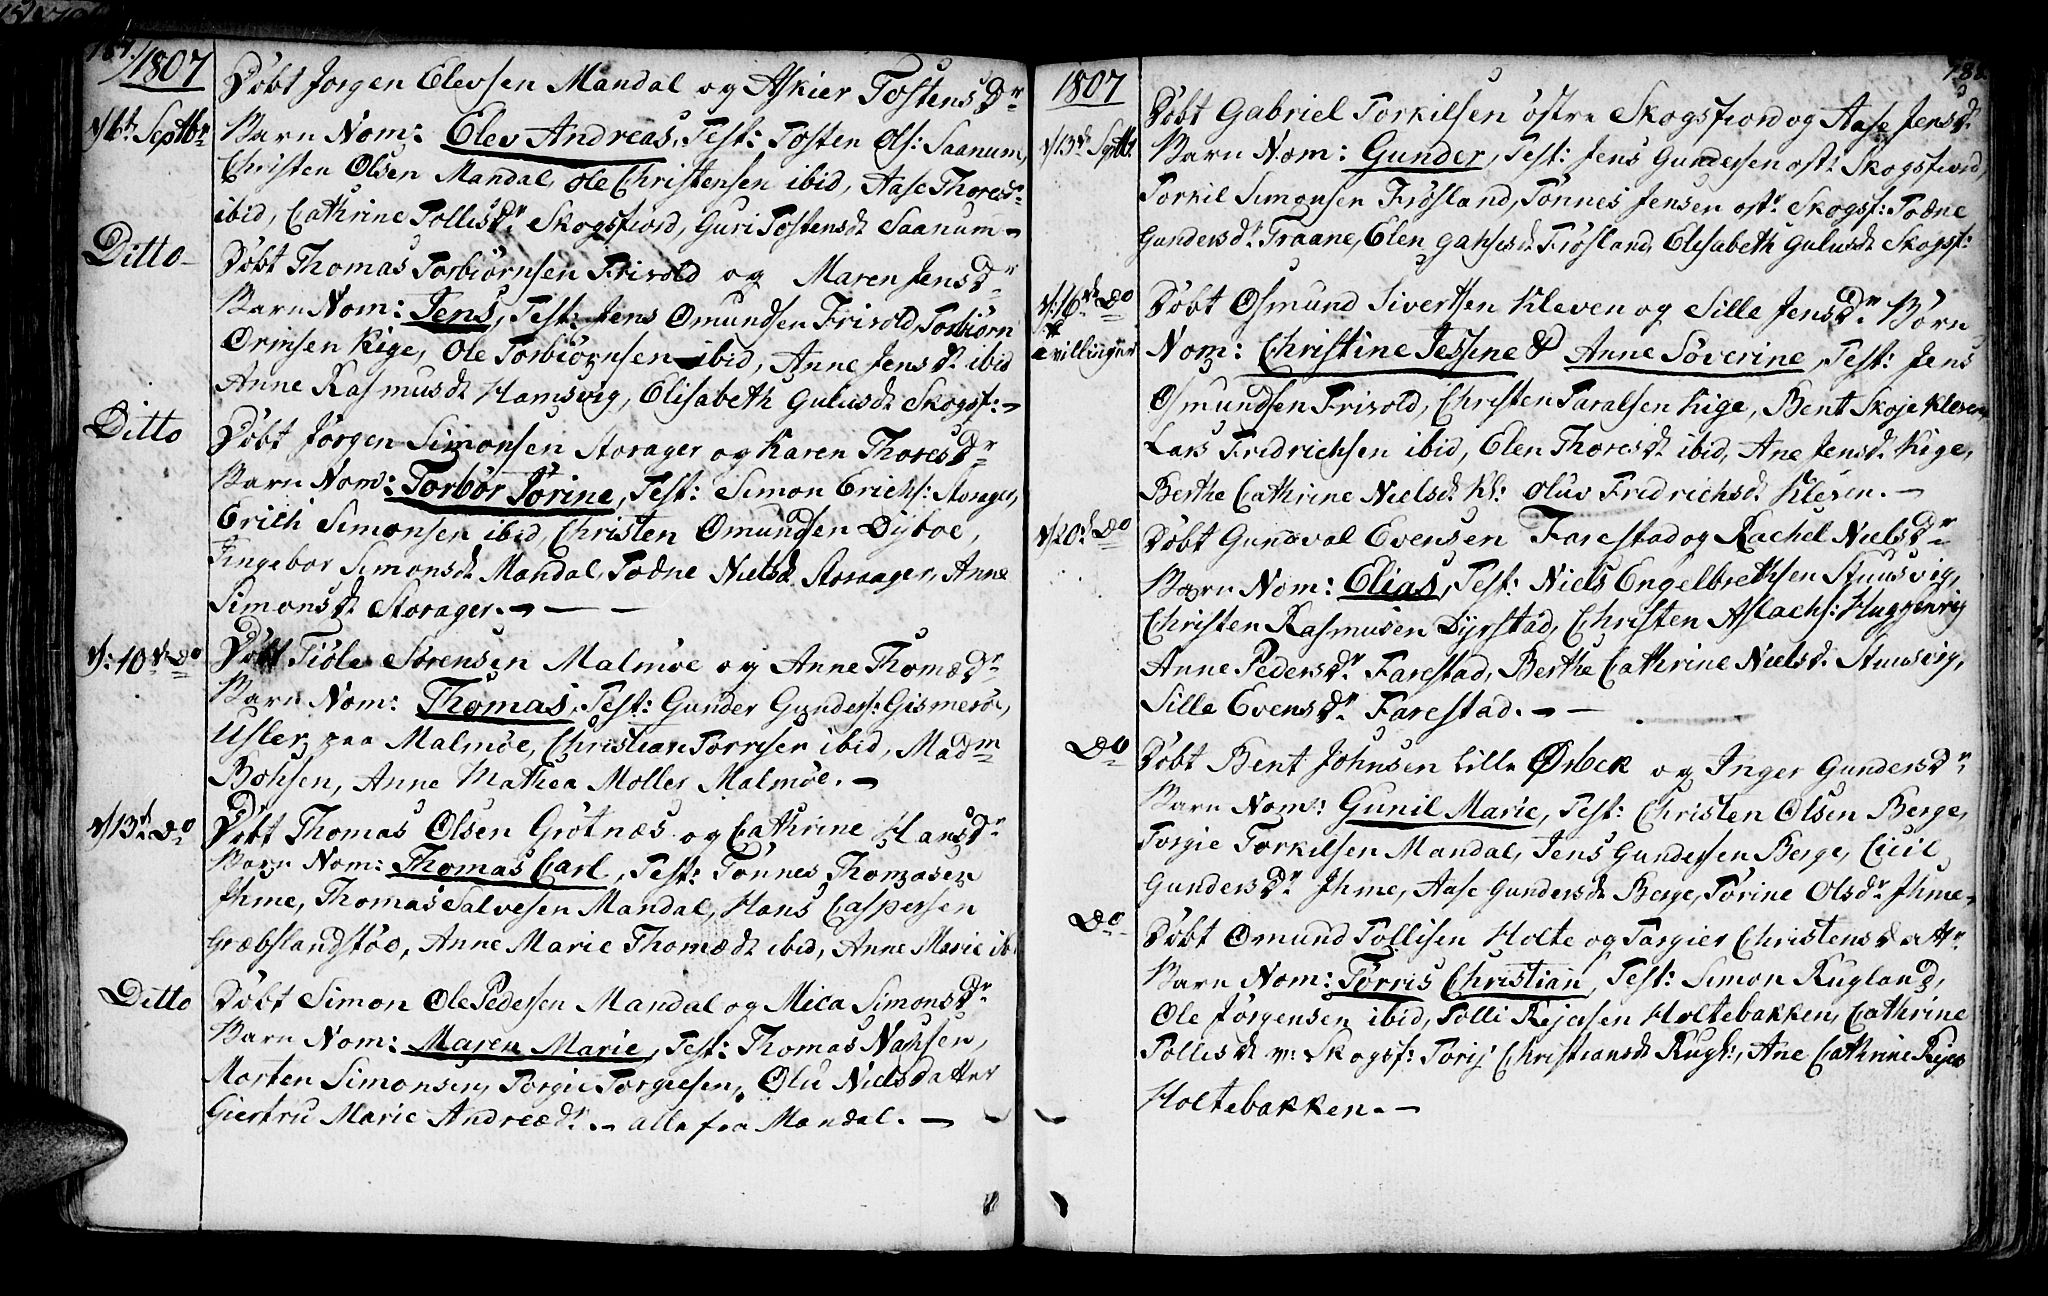 187.
1807
Døbt Jørgen Elevsen Mandal og Askier Tostensdr
d/6te Septbr
Barn Nom: Elev Andreas, Test: Tosten Ols: Saanum,
Christen Olsen Mandal, Ole Christensen ibid, Aase Thoresdr
ibid, Cathrine Tollisdr Skogsfiord, Guri Tostensd. Saanum
Ditto
Døbt Thomas Torbiørnsen Frivold og Maren Jensdr
Barn Nom: Jens, Test: Jens Omundsen Frivold, Torbiørn
Ormsen Kige, Ole Torbiørnsen ibid, Anne Jensd. ibid
Anne Rasmusd. Hamsvig, Elisabeth Gulusd. Skogsf:
Ditto
Døbt Jørgen Simonsen Storager og Karen Thoresdr
Barn Nom: Torbør Tørine, Test: Simon Erichs: Storager,
Erich Simonsen ibid, Christen Omundsen Dyboe,
Ingebor Simonsd. Mandal, Todne Nielsd. Storager, Anne
Simonsd. Storager.
d: 10de Do
Døbt Tiøle Sørensen Malmøe og Anne Thomædr
Barn Nom: Thomas, Test: Gunder Gunders: Gismerøe,
Usler paa Malmøe, Christian Torrisen ibid, Madm
Bohsen, Anne Mathea Møller Malmøe.
d/13de Do
Døbt Thomas Olsen Grøtnæs og Cathrine Hansdr
Barn Nom: Thomas Carl, Test: Tønnes Thomasen
Ihme, Thomas Salvesen Mandal, Hans Caspersen
Græbslandstøe, Anne Marie Thomæd. ibid, Anne Marie ib
Ditto
Døbt Simon Ole Pedersen Mandal og Mica Simonsdr
Barn Nom: Maren Marie, Test: Thomas Nahsen,
Morten Simonsen, Torgie Torgiesen, Olu Nielsdatter
Giertru Marie Andreædr alle fra Mandal.
188
1807
Døbt Gabriel Torkilsen østre Skogsfiord og Aase Jensd.
d/13de Septbr
Barn Nom: Gunder, Test: Jens Gundersen østr Skogsfiord,
Torkil Simonsen Frøsland, Tønnes Jensen østr Skogsf: Todne
Gundersdr Traane, Elen Gabrielsd. Frøsland, Elisabeth Gulusd. Skogsf:
d: 16de Do
Døbt Osmund Sivertsen Kleven og Sille Jensdr Børn
Tvillinger
Nom: Christine Jessine & Anne Søverine, Test: Jens
Osmundsen Frivold, Christen Taralsen Kige, Bent Skoje Kleven,
Lars Fridrichsen ibid, Elen Thoresd. ibid, Ane Jensd. Kige,
Berthe Cathrine Nielsd. Kl: Oluv Fridrichsd. Kleven.
d/20de Do
Døbt Gundval Evensen Farestad og Rachel Nielsdr
Barn Nom: Elias, Test: Niels Engelbrethsen Stuusvig,
Christen Rasmusen Dyrstad, Christen Aslachs: Huggenvig
Anne Pedersdr Farestad, Berthe Cathrine Nielsd. Stuusvig,
Sille Evensdr Farestad.
Do
Døbt Bent Johnsen Lille Ørbek og Inger Gundersdr
Barn Nom: Gunil Marie, Test: Christen Olsen Berge,
Torgie Torkilsen Mandal, Jens Gundersen Berge, Cicil
Gundersdr Ihme, Aase Gundersd. Berge, Tørine Olsdr Ihme
Do
Døbt Omund Tollisen Holte og Targier Christensdattr
Barn Nom: Tørris Christian, Test: Simon Rugland,
Ole Jørgensen ibid, Tolli Rejersen Holtebakken, Cathrine
Tollisd. v: Skogsf: Torij Christiansd. Rugl:, Ane Cathrine Rejer
Holtebakken.